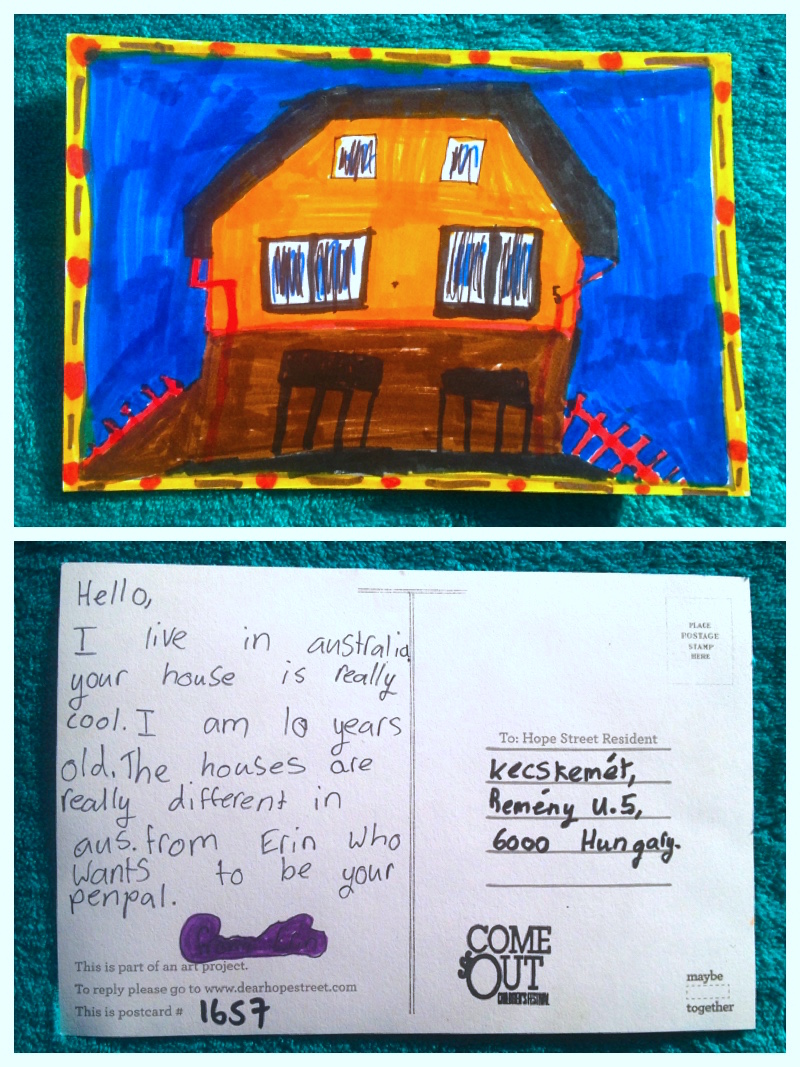 5
Hello,
I live in australia
your house is really
cool. I am 10 years
old. The houses are
really different in
aus. from Erin who
wants to be your
penpal.
This is part of an art project.
To reply please go to www.dearhopestreet.com
This is postcard # 1657
PLACE
POSTAGE
STAMP
HERE
To: Hope Street Resident
Kecskemét,
Remény U.5,
6000 Hungary.
COME
OUT
CHILDREN'S FESTIVAL
maybe
together